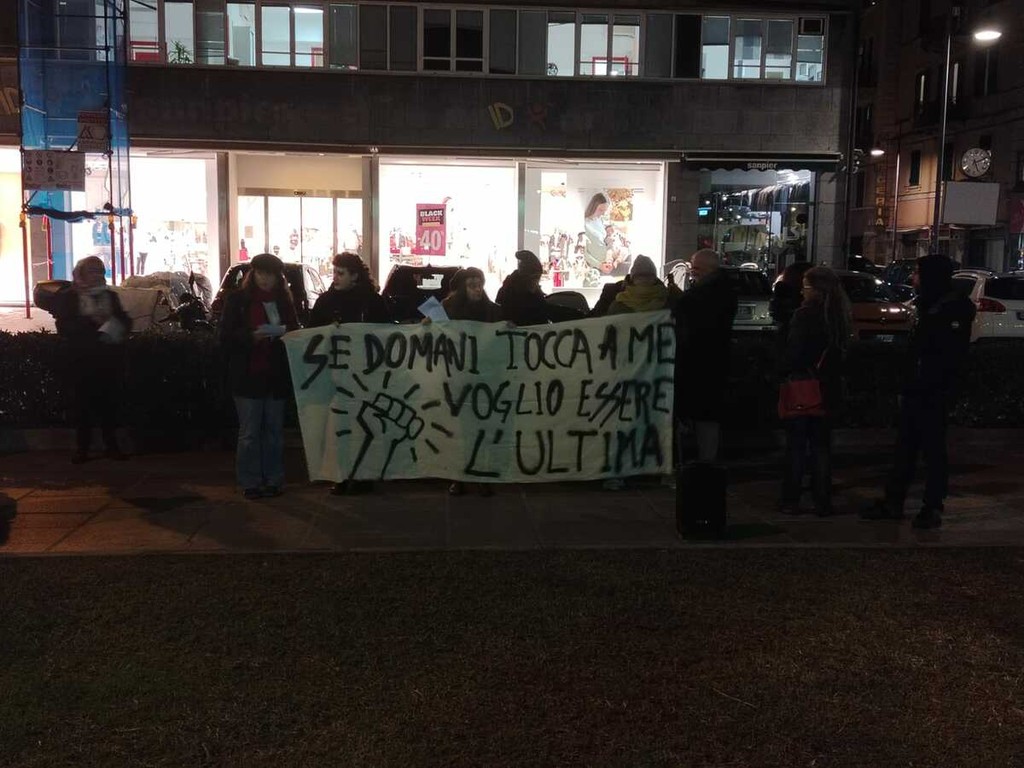 sanpier
BLACK
WEEK
40
SE DOMANI TOCCA A ME
VOGLIO ESSERE
L'ULTIMA